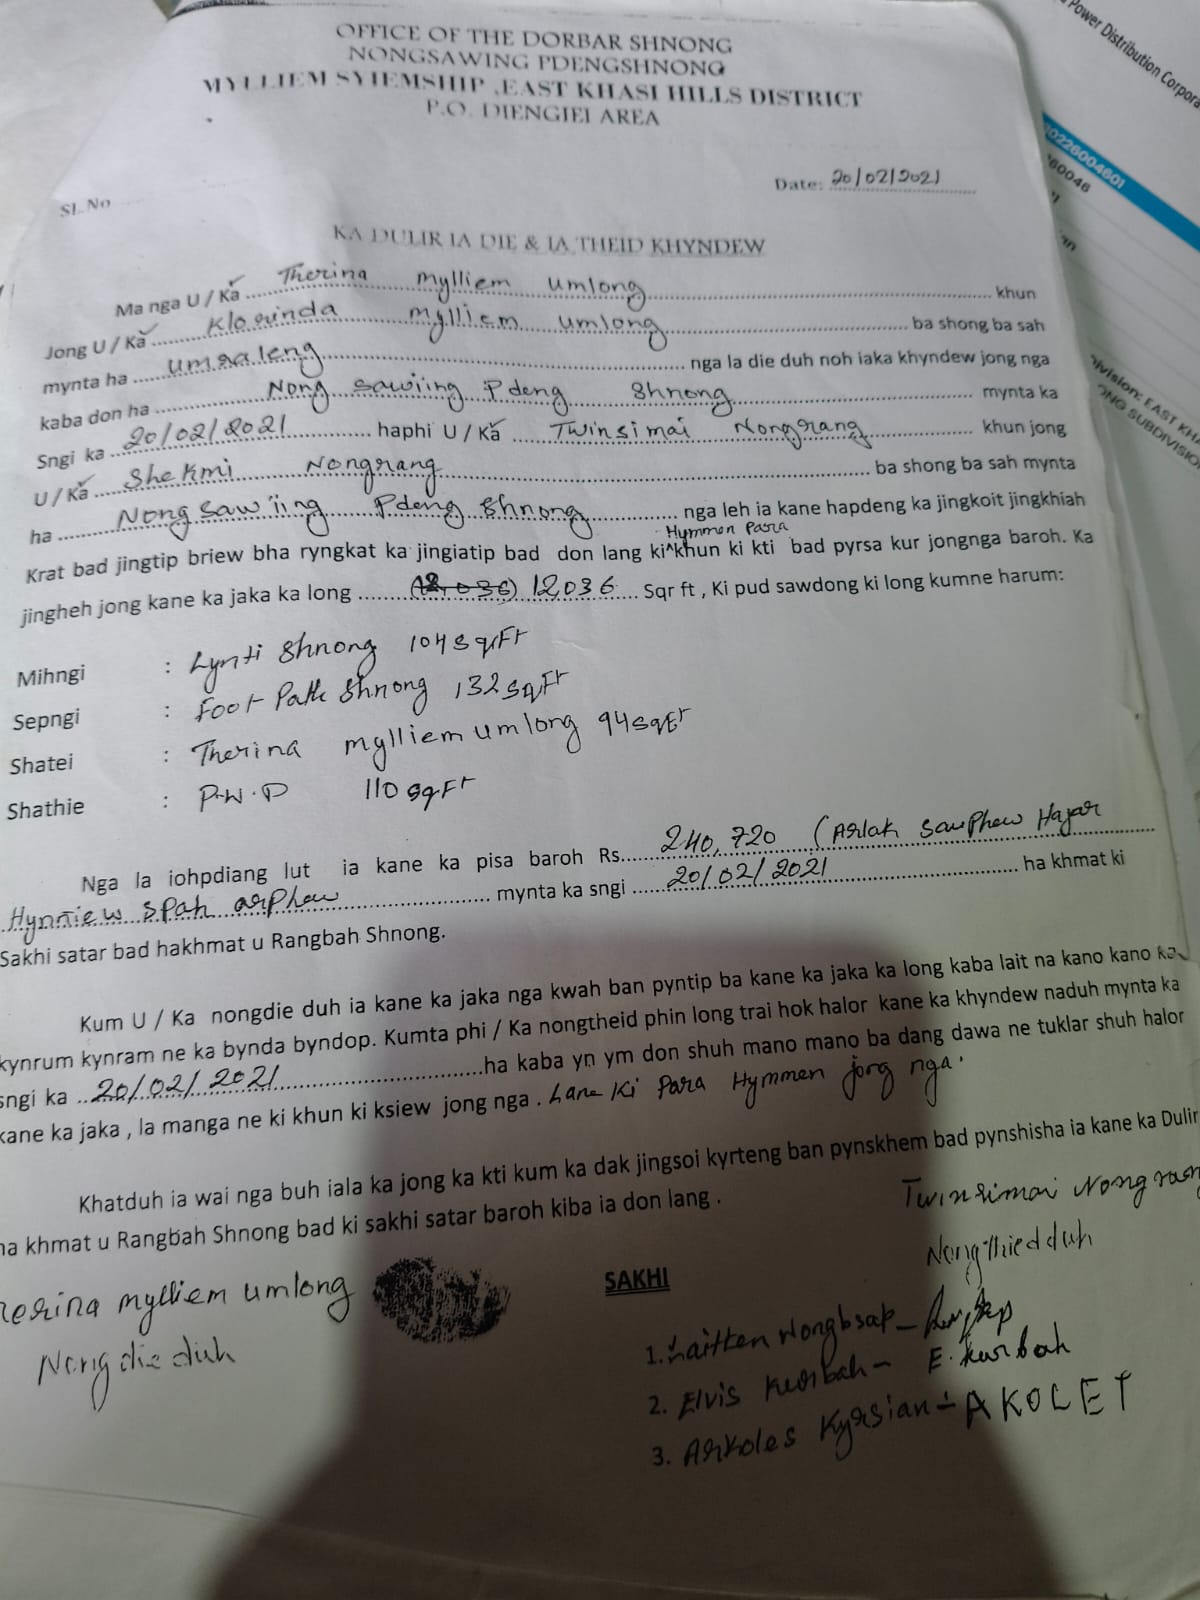 OFFICE OF THE DORBAR SHNONG
NONGSAWING PDENGSHNONG
MYLLIEM SYIEMSHIP ,EAST KHASI HILLS DISTRICT
P.O. DIENGIEI AREA
Power Distribution Corpora
Date: 20/02/2021
SL.No
KA DULIR IA DIE & IA THEID KHYNDEW
Ma nga U / Ka Therina mylliem umlong khun
Jong U / Ka Klorinda mylliem umlong ba shong ba sah
mynta ha umraleng nga la die duh noh iaka khyndew jong nga
kaba don ha Nong sawiing Pdeng Shnong mynta ka
Sngi ka 20/02/2021 haphi U / Ka Twinsimai Nongrang khun jong
U / Ka Shekmi Nongrang ba shong ba sah mynta
ha Nongsaw iing Pdeng Shnong nga leh ia kane hapdeng ka jingkoit jingkhiah
Hymmen Para
Krat bad jingtip briew bha ryngkat ka jingiatip bad don lang ki^khun ki kti bad pyrsa kur jongnga baroh. Ka
jingheh jong kane ka jaka ka long (12,036) 12,036 Sqr ft , Ki pud sawdong ki long kumne harum:
Mihngi : Lynti Shnong 104 sqrFt
Sepngi : Foot Path Shnong 132 sqFt
Shatei : Therina mylliem umlong 94 sqFt
Shathie : P.W.D 110 sqFt
Nga la iohpdiang lut ia kane ka pisa baroh Rs. 240,720 (Arlak sawphew Hajar
Hynniew spah arphew mynta ka sngi 20/02/2021 ha khmat ki
Sakhi satar bad hakhmat u Rangbah Shnong.
Kum U / Ka nongdie duh ia kane ka jaka nga kwah ban pyntip ba kane ka jaka ka long kaba lait na kano kano ka
kynrum kynram ne ka bynda byndop. Kumta phi / Ka nongtheid phin long trai hok halor kane ka khyndew naduh mynta ka
sngi ka 20/02/2021 ha kaba yn ym don shuh mano mano ba dang dawa ne tuklar shuh halor
kane ka jaka , la manga ne ki khun ki ksiew jong nga . Lane Ki Para Hymmen jong nga.
Khatduh ia wai nga buh iala ka jong ka kti kum ka dak jingsoi kyrteng ban pynskhem bad pynshisha ia kane ka Dulir
ha khmat u Rangbah Shnong bad ki sakhi satar baroh kiba ia don lang .
Twinsimai Nongrang
Nongthied duh
Therina mylliem umlong
Nongdie duh
SAKHI
1. Laitken Nongbsap -
2. Elvis Kurbah - E. Kurbah
3. Arkoles Kyrsian - AKOLET